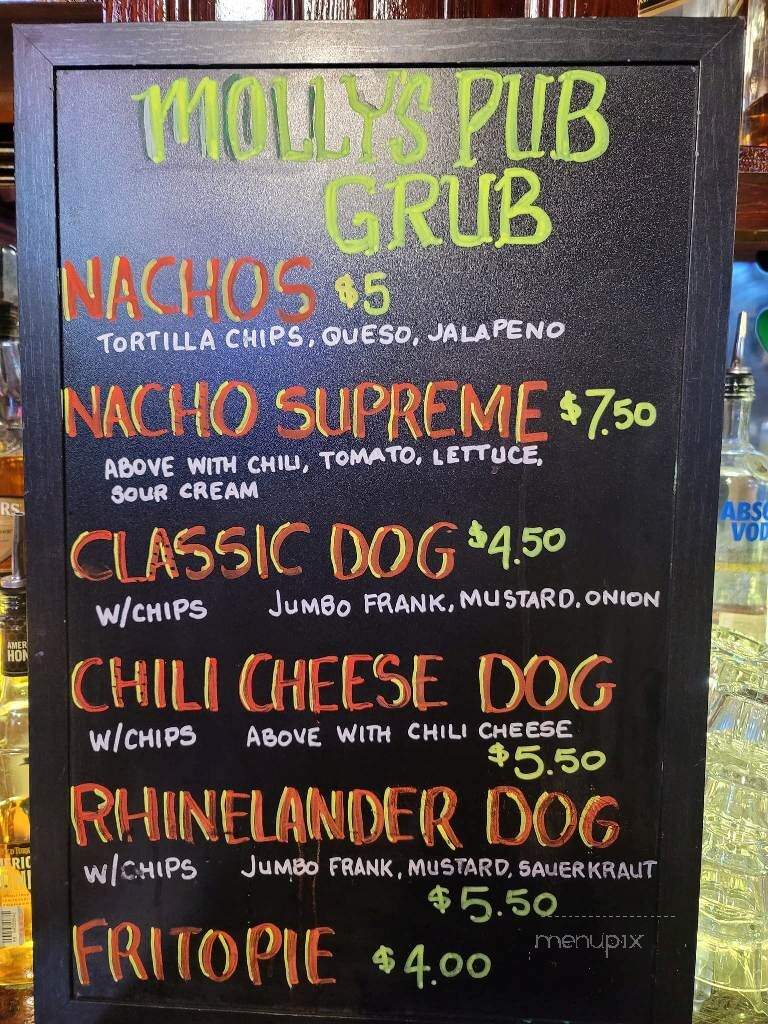 MOLLY'S PUB
GRUB
NACHOS $5
TORTILLA CHIPS, QUESO, JALAPENO
NACHO SUPREME $7.50
ABOVE WITH CHILI, TOMATO, LETTUCE,
SOUR CREAM
CLASSIC DOG $4.50
W/CHIPS JUMBO FRANK, MUSTARD, ONION
CHILI CHEESE DOG
W/CHIPS ABOVE WITH CHILI CHEESE
$5.50
RHINELANDER DOG
W/CHIPS JUMBO FRANK, MUSTARD, SAUERKRAUT
$5.50
FRITO PIE $4.00
menupix
RS
AMER
HON
ERIC
ABSO
VOD